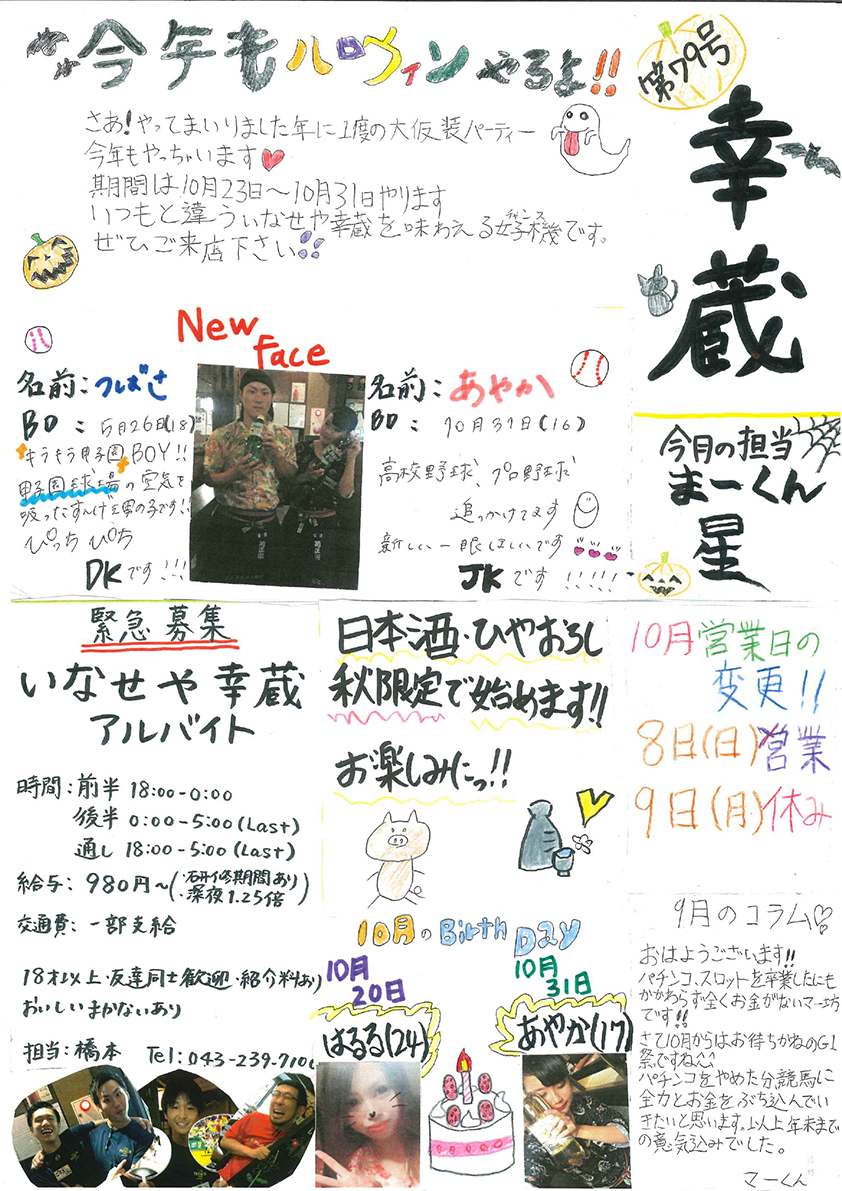 今年もハロウィンやるよ!!
さあ!やってまいりました年に1度の大仮装パーティー
今年もやっちゃいます♥
期間は10月23日~10月31日やります
いつもと違ういなせや幸蔵を味わえる好機です。
チャンス
ぜひご来店下さい
第79号
幸蔵
今月の担当
まーくん
星
New
Face
名前:つばさ
BD : 5月26日(18)
キラキラ甲子園BOY!!
甲子園球場の空気を
吸ったすんげえ男の子です!!
ぴっち ぴち
DKです!!!
名前:あやか
BD : 10月31日(16)
高校野球、プロ野球
追っかけてます
新しい一眼ほしいです
JKです!!!!!
緊急募集
いなせや幸蔵
アルバイト
時間:前半 18:00-0:00
後半 0:00-5:00(Last)
通し 18:00-5:00(Last)
給与: 980円~(・研修期間あり
・深夜1.25倍)
交通費: 一部支給
18才以上・友達同士歓迎・紹介料あり
おいしいまかないあり
担当:橋本 Tel:043-239-710
日本酒・ひやおろし
秋限定で始めます!!
お楽しみにっ!!
10月のBirth Day
10月
20日
はるる(24)
10月
31日
あやか(17)
10月営業日の
変更!!
8日(日)営業
9日(月)休み
9月のコラム♡
おはようございます!!
パチンコ、スロットを卒業したにも
かかわらず全くお金がないマー坊
です!!
さて10月からはお待ちかねのG1
祭ですね^^
パチンコをやめた分競馬に
全力とお金をぶち込んでい
きたいと思います。以上年末まで
の意気込みでした。
マーくん